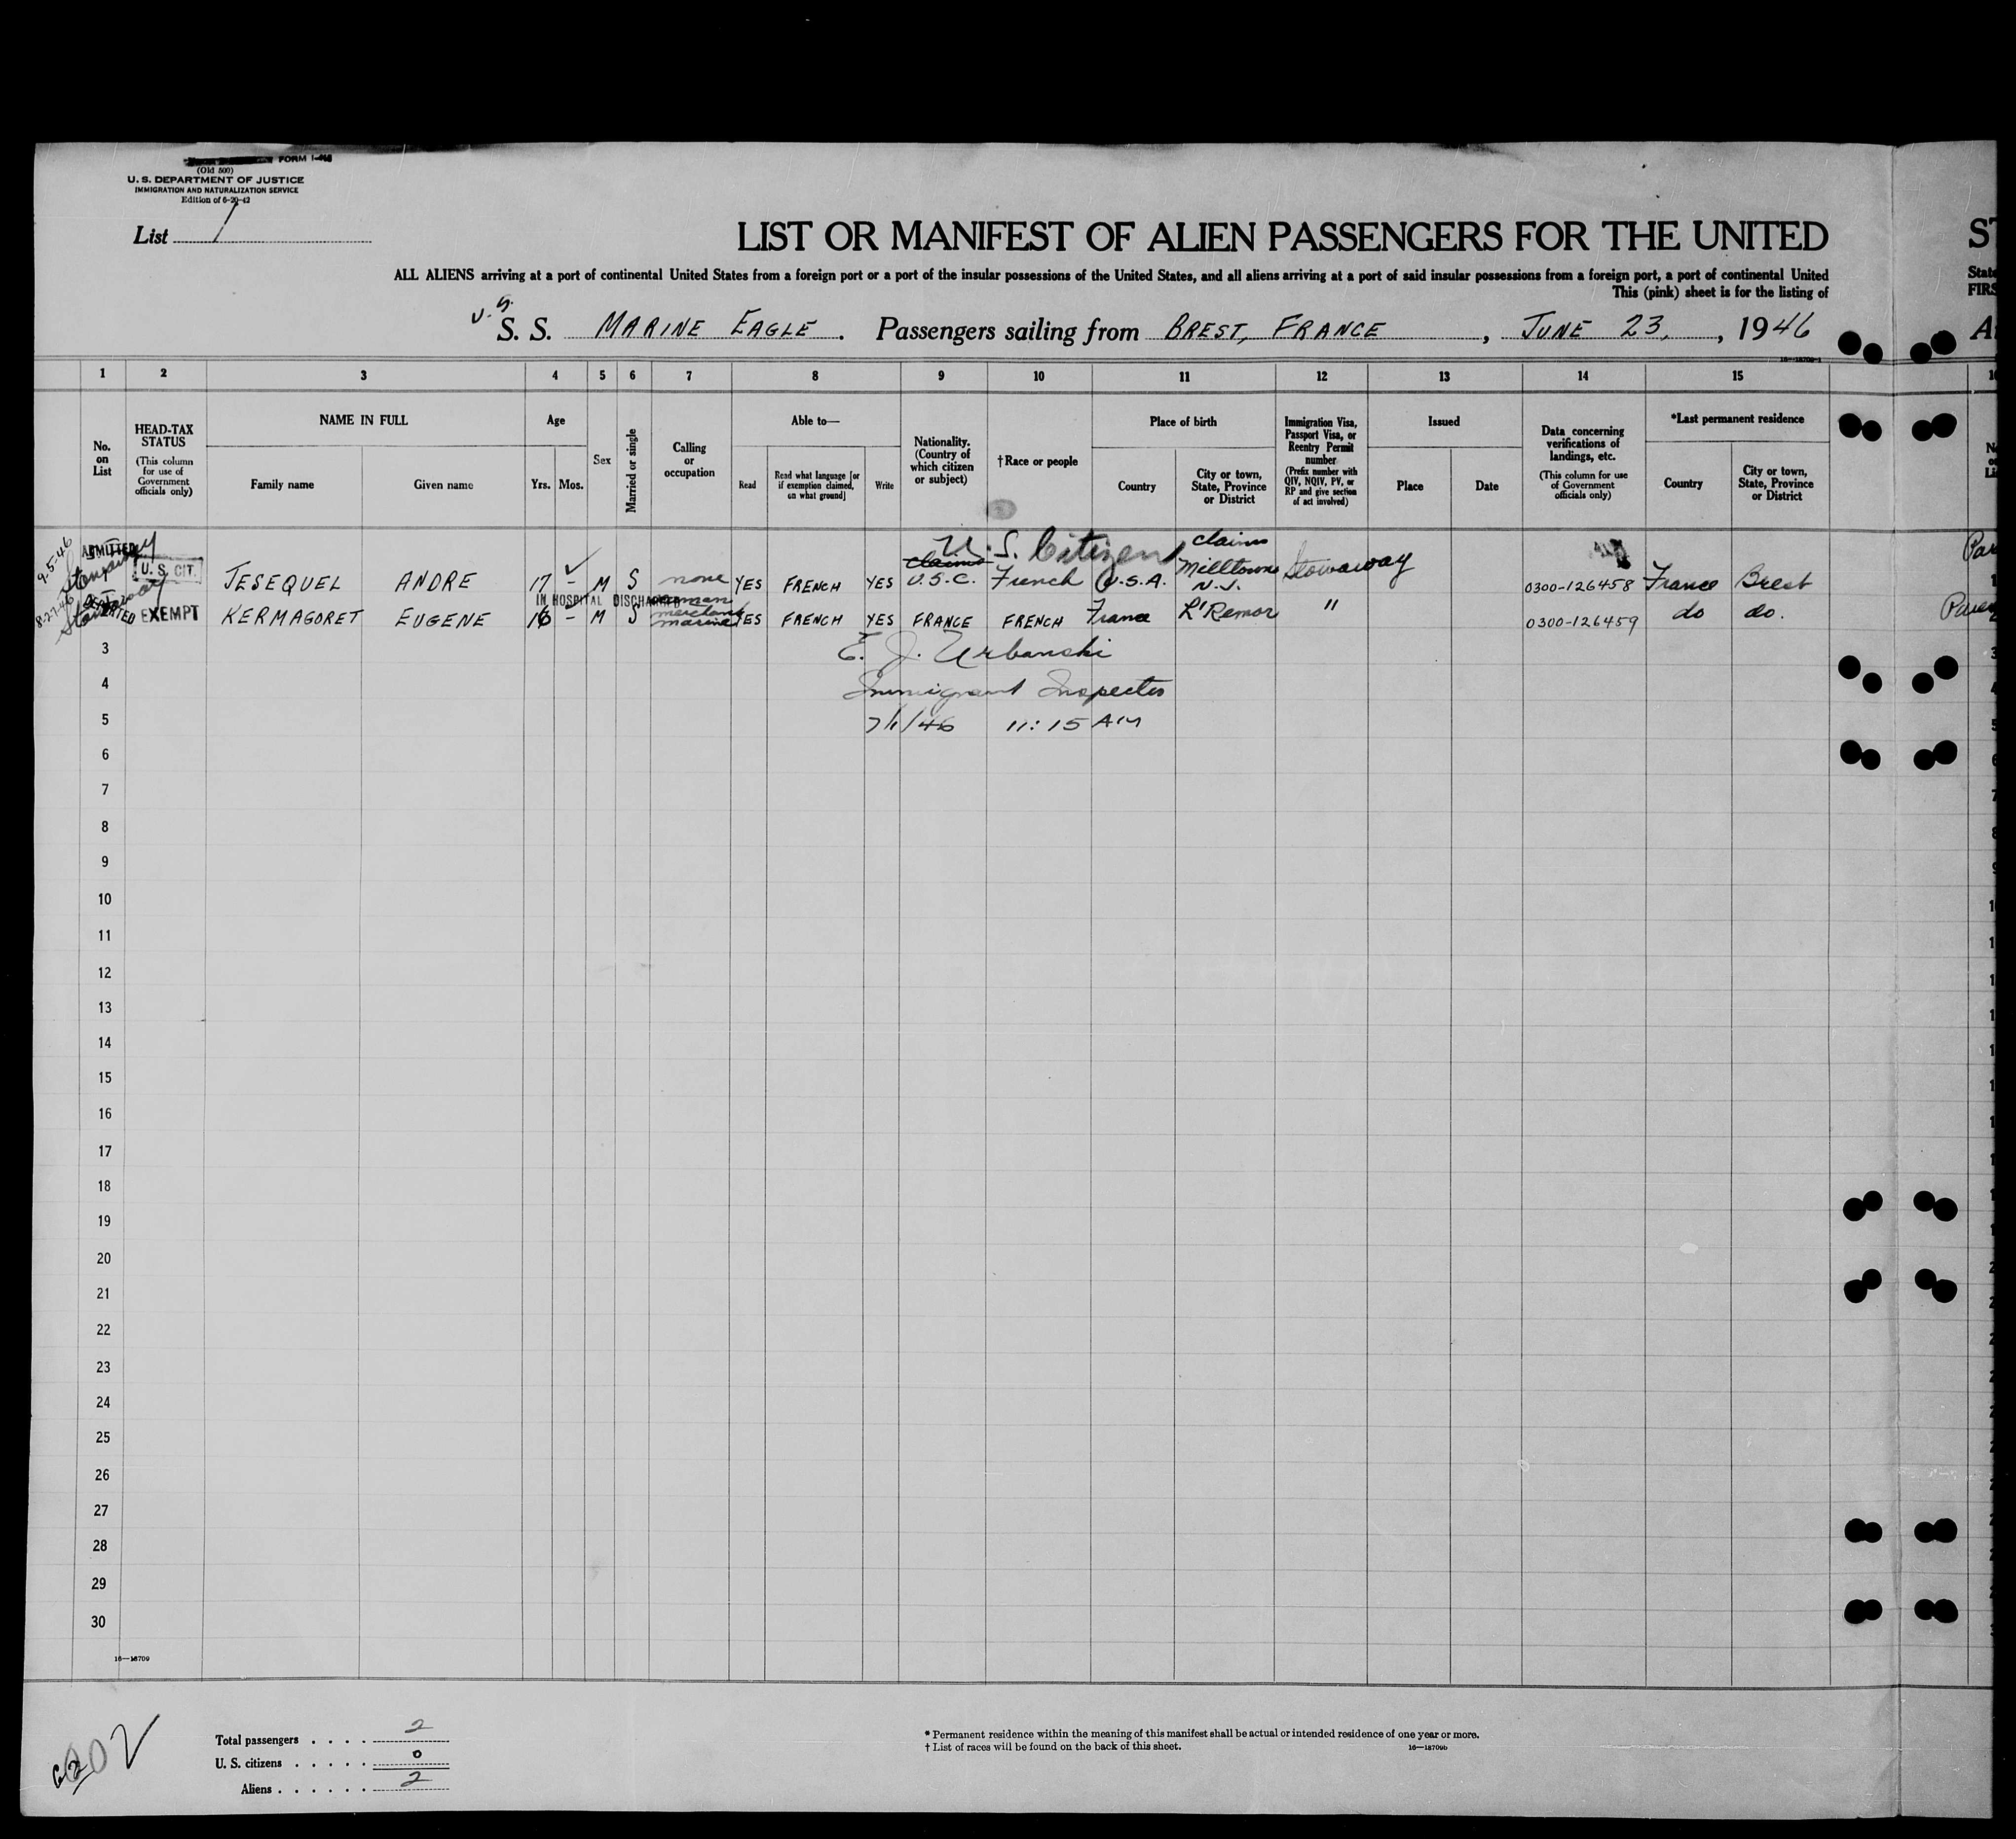 FORM I-415
(Old 500)
U. S. DEPARTMENT OF JUSTICE
IMMIGRATION AND NATURALIZATION SERVICE
Edition of 6-20-42
List 1
LIST OR MANIFEST OF ALIEN PASSENGERS FOR THE UNITED
ST
ALL ALIENS arriving at a port of continental United States from a foreign port or a port of the insular possessions of the United States, and all aliens arriving at a port of said insular possessions from a foreign port, a port of continental United
State
This (pink) sheet is for the listing of
FIRS
U.S.
S. S. MARINE EAGLE. Passengers sailing from BREST, FRANCE, JUNE 23, 1946
16—18709-1
1 2 3 4 5 6 7 8 9 10 11 12 13 14 15
No. on List
HEAD-TAX STATUS
(This column for use of Government officials only)
NAME IN FULL
Family name
Given name
Age
Yrs. Mos.
Sex
Married or single
Calling or occupation
Able to—
Read
Read what language [or if exemption claimed, on what ground]
Write
Nationality. (Country of which citizen or subject)
†Race or people
Place of birth
Country
City or town, State, Province or District
Immigration Visa, Passport Visa, or Reentry Permit number
(Prefix number with QIV, NQIV, PV, or RP and give section of act involved)
Issued
Place
Date
Data concerning verifications of landings, etc.
(This column for use of Government officials only)
*Last permanent residence
Country
City or town, State, Province or District
9-5-46 ADMITTED Stowaway U. S. CIT.
U.S. Citizen
claims
JESEQUEL ANDRE 17 - M S none YES FRENCH YES claims U.S.C. French U.S.A. Milltown N.J. Stowaway 0300-126458 France Brest
IN HOSPITAL DISCHARGED
8-27-46 Stowaway EXEMPT KERMAGORET EUGENE 16 - M S seaman merchant marine YES FRENCH YES FRANCE FRENCH France L'Remor " 0300-126459 do do.
3 E. J. Urbanski
4 Immigrant Inspector
5 7/1/46 11:15 AM
6
7
8
9
10
11
12
13
14
15
16
17
18
19
20
21
22
23
24
25
26
27
28
29
30
16—18709
Total passengers . . . . 2
U. S. citizens . . . . . 0
Aliens . . . . . . 2
* Permanent residence within the meaning of this manifest shall be actual or intended residence of one year or more.
† List of races will be found on the back of this sheet.
16—18709b